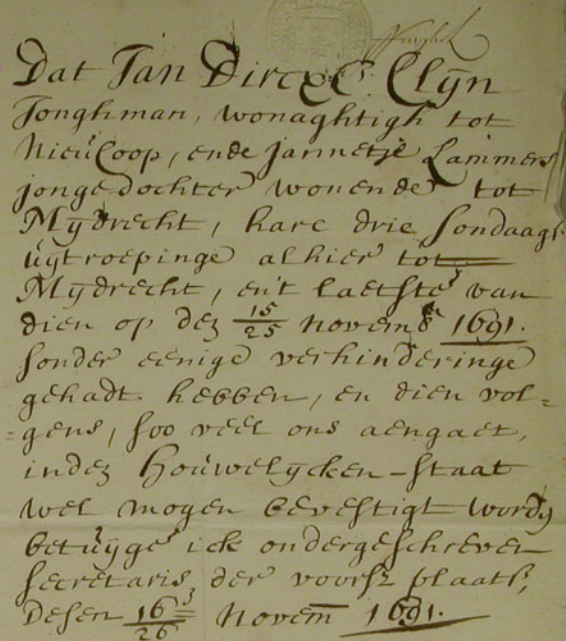 Dat Jan Dircxs: Clijn
Jonghman, wonaghtigh tot
Nieucoop, ende Jannetje Lammers
jonge dochter wonende tot
Mijdrecht, hare drie Sondaags
uytroepinge alhier tot
Mijdrecht, en't laetste van
dien op dez 15/25 Novemb 1691.
sonder eenige verhinderinge
gehadt hebben, en dien vol=
=gens, soo veel ons aengaet,
indez Houwelycken-staat
wel mogen bevestigt worden
betuyge ick ondergeschreven
secretaris der voorsz plaats,
Desen 16/26 Novem 1691.